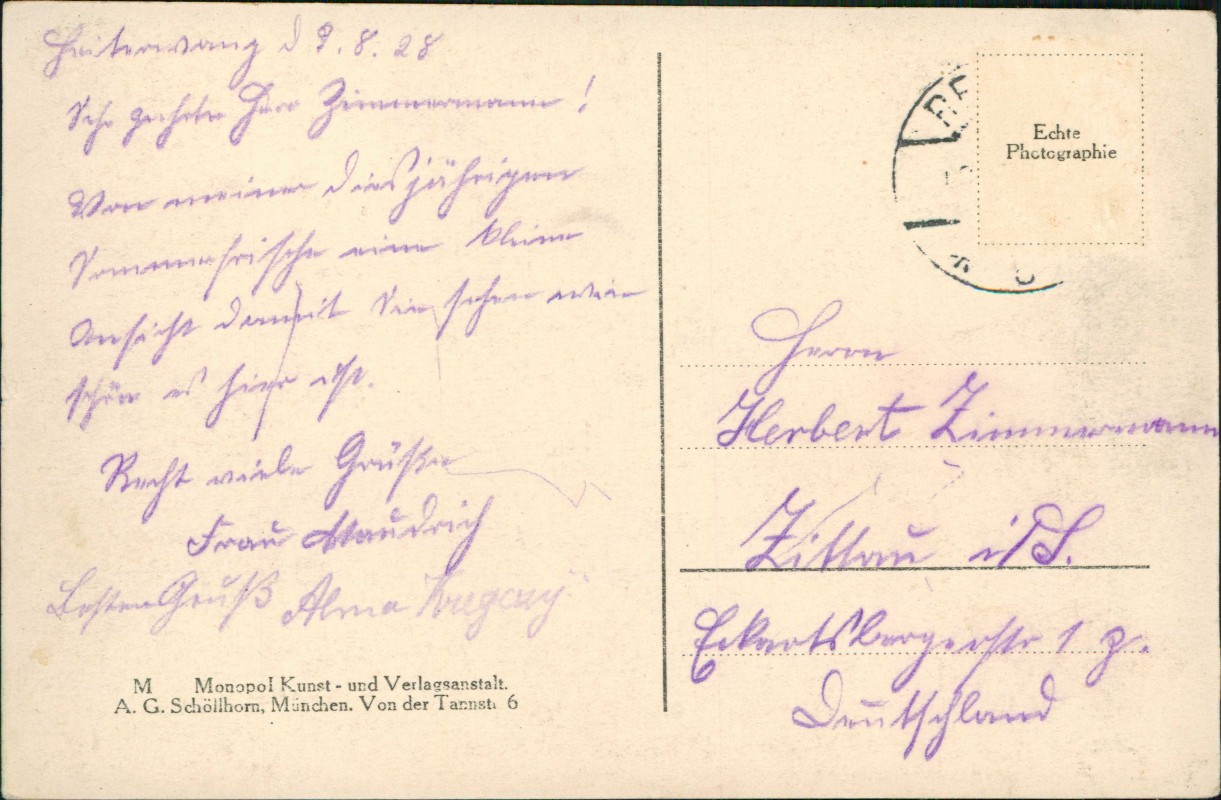 Heiterwang d 9. 8. 28
Sehr geehrter Herr Zimmermann!
Von meiner diesjährigen
Sommerfrische eine kleine
Ansicht damit Sie sehen wie
schön es hier ist.
Recht viele Grüße
Frau
Besten Gruß Alma
M Monopol Kunst- und Verlagsanstalt.
A. G. Schöllhorn, München. Von der Tannstr. 6
Echte
Photographie
Herrn
Herbert Zimmermann
Zittau i/S.
Eckartsbergerstr 1 p.
Deutschland